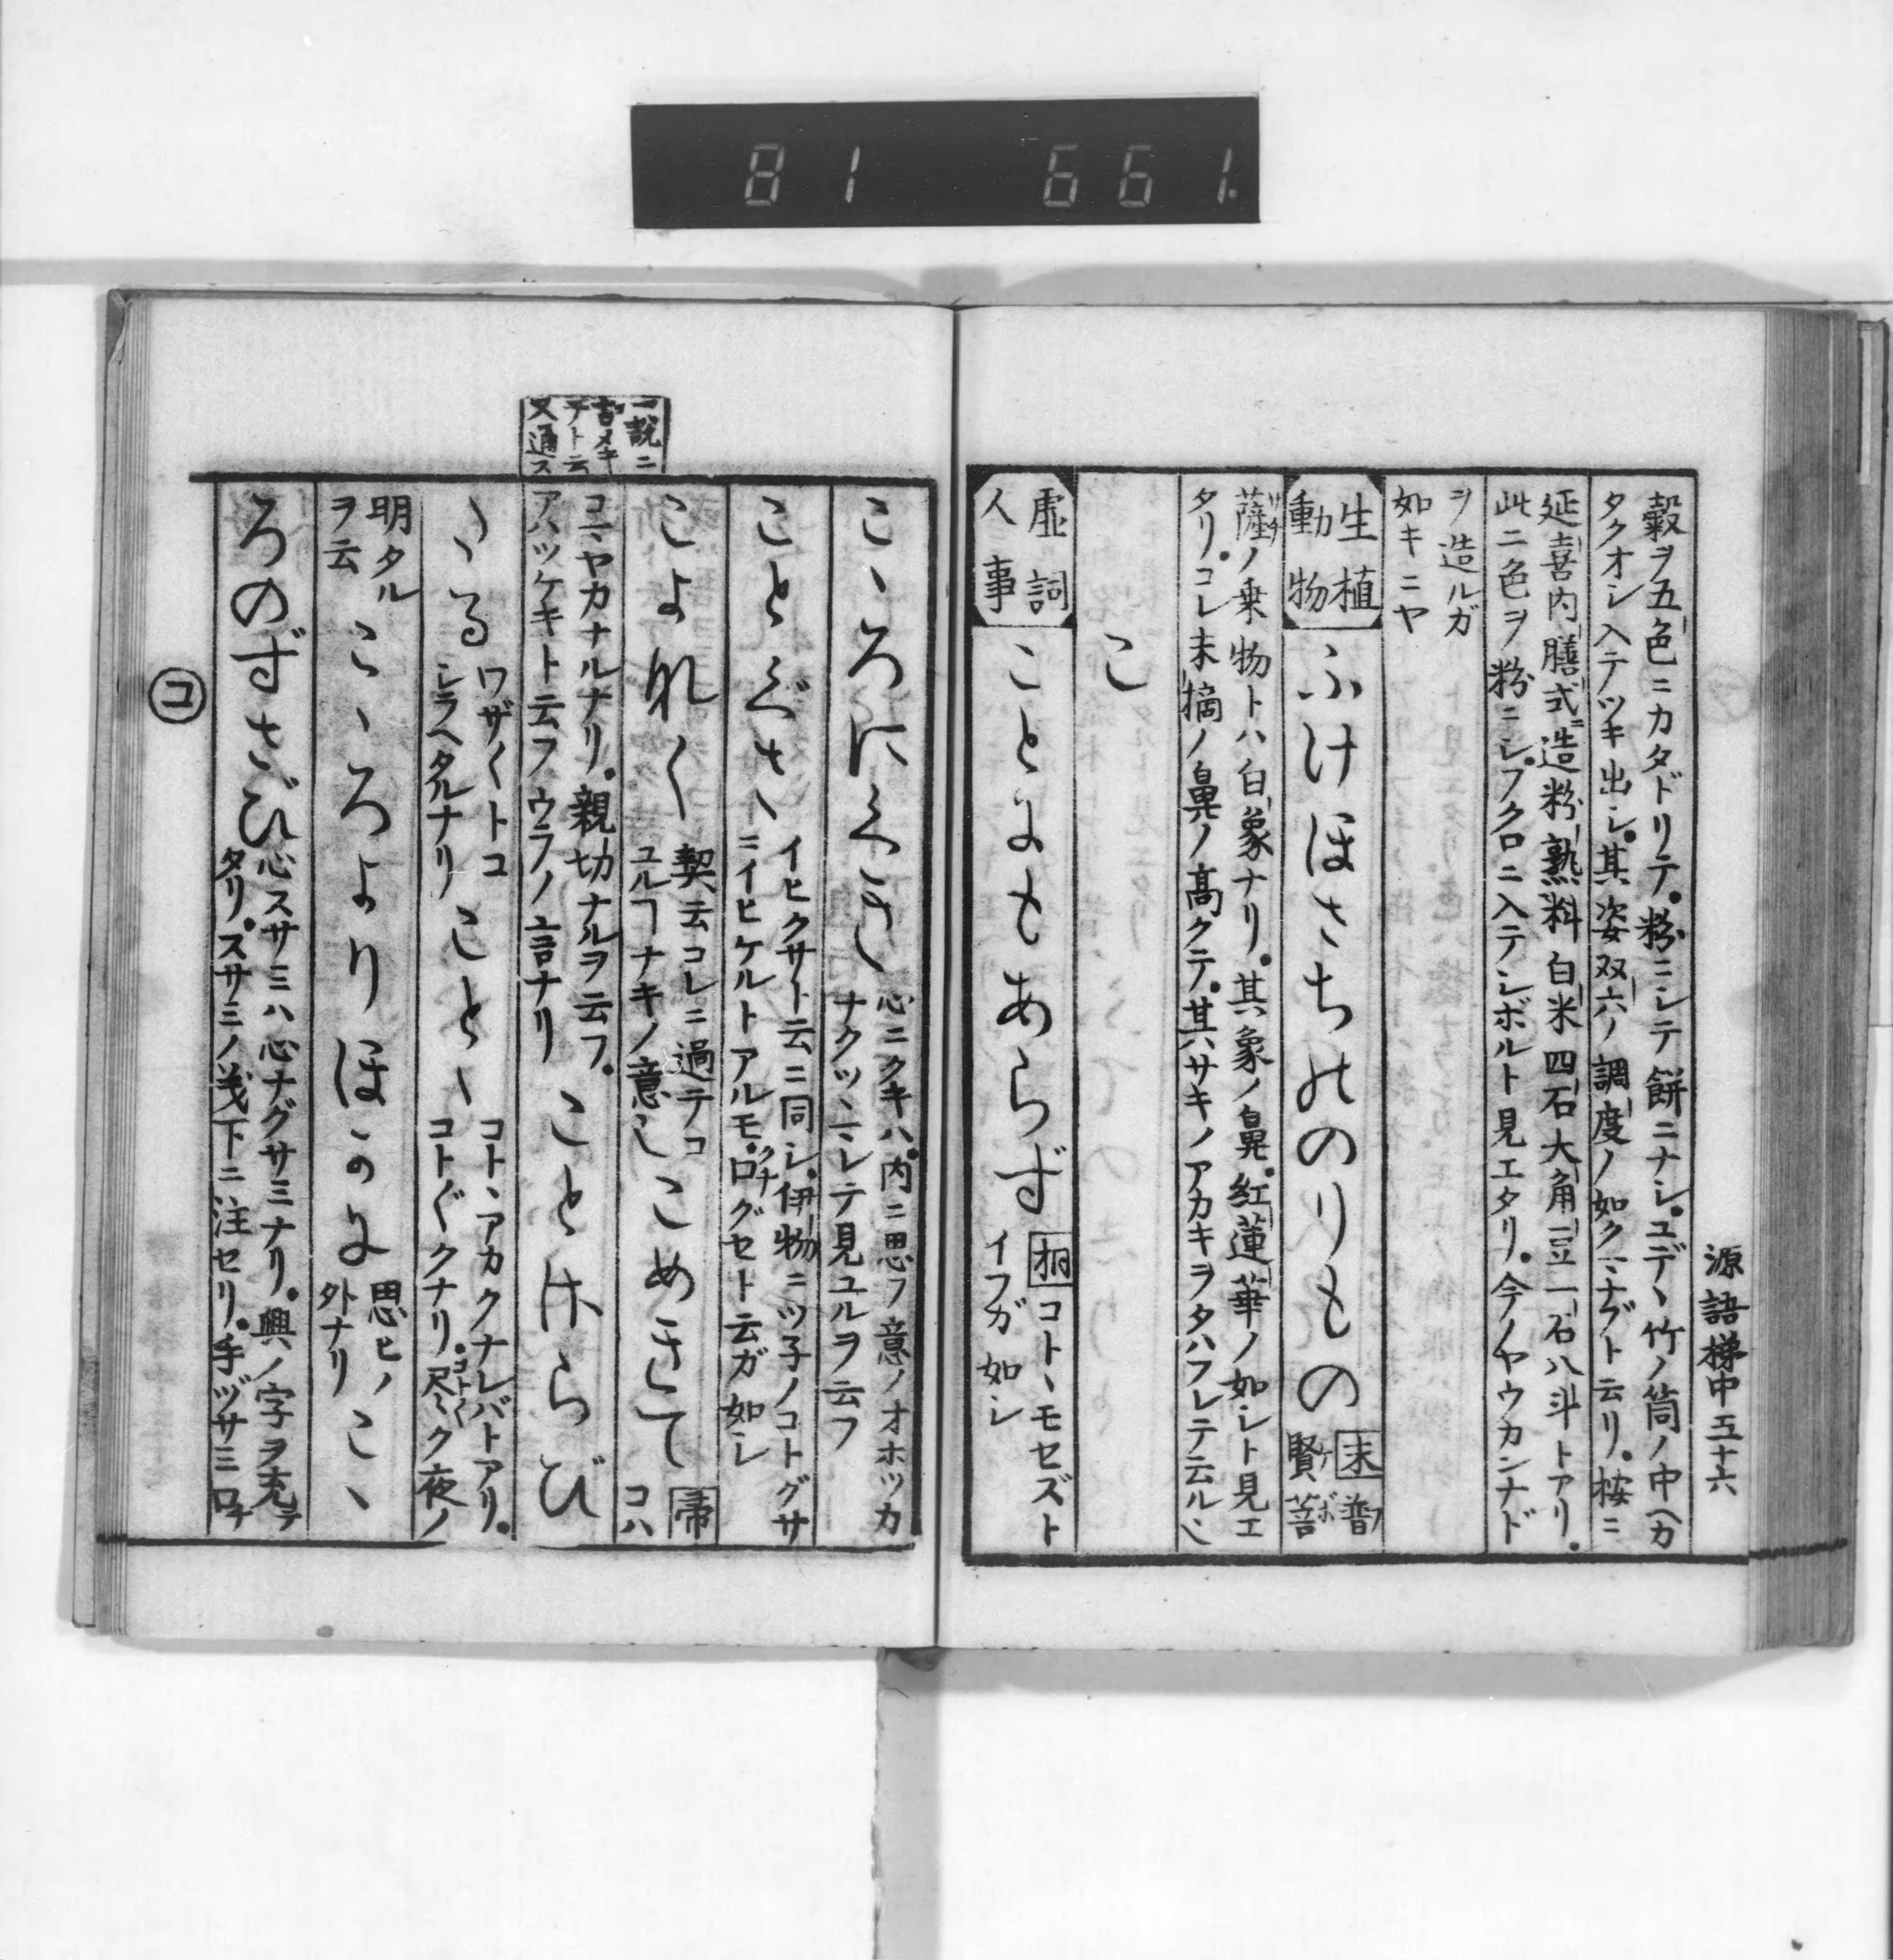 81 661.
源語梯中五十六
穀ヲ五色ニカタドリテ。粉ニシテ餅ニナシ。ユデヽ竹ノ筒ノ中ヘカ
タクオシ入テツキ出シ。其姿双六ノ調度ノ如クニナゾト云リ。桉ニ
延喜内膳式ニ造粉熟料白米四石大角豆一石八斗トアリ。
此ニ色ヲ粉ニシ。フクロニ入テシボルト見エタリ。今ノヤウカンナド
ヲ造ルガ
如キニヤ
生植
動物
ふけほさちのりもの
末 普
賢菩
薩ノ乗物トハ白象ナリ。其象ノ鼻。紅蓮華ノ如シト見エ
タリ。コレ末摘ノ鼻ノ高クテ。其ハサキノアカキヲタハフレテ云ル也
こ
虚詞
人事
ことにもあらず
桐 コトヽモセズト
イフガ如シ
こゝろにくきし
心ニクキハ。内ニ思フ意ノオホツカ
ナクツヽミレテ見ユルヲ云フ
ことぐさゝ
イヒクサト云ニ同シ。伊物ニツ子ノコトグサ
ニイヒケルトアルモ。口グセト云ガ如シ
こよれく
契云コレニ過テコ
ユルヿナキノ意也
こめきて
帚 コハ
一説ニ
古メキ
テト云
又通ス
コマヤカナルナリ。親切ナルヲ云フ。
アハツケキト云フウラノ言ナリ
ことけらび
ゝる
ワザ〱トコ
シラヘタルナリ
ことゝ
コトヽアカクナレバトアリ。
コトぐクナリ。尽〻ク夜ノ
明タル
ヲ云
こゝろよりほかに
思ヒノ
外ナリ
こゝ
ろのずさび
心スサミハ心ナグサミナリ。興ノ字ヲ充テ
タリ。スサミノ義下ニ注セリ。手ヅサミ口
コ